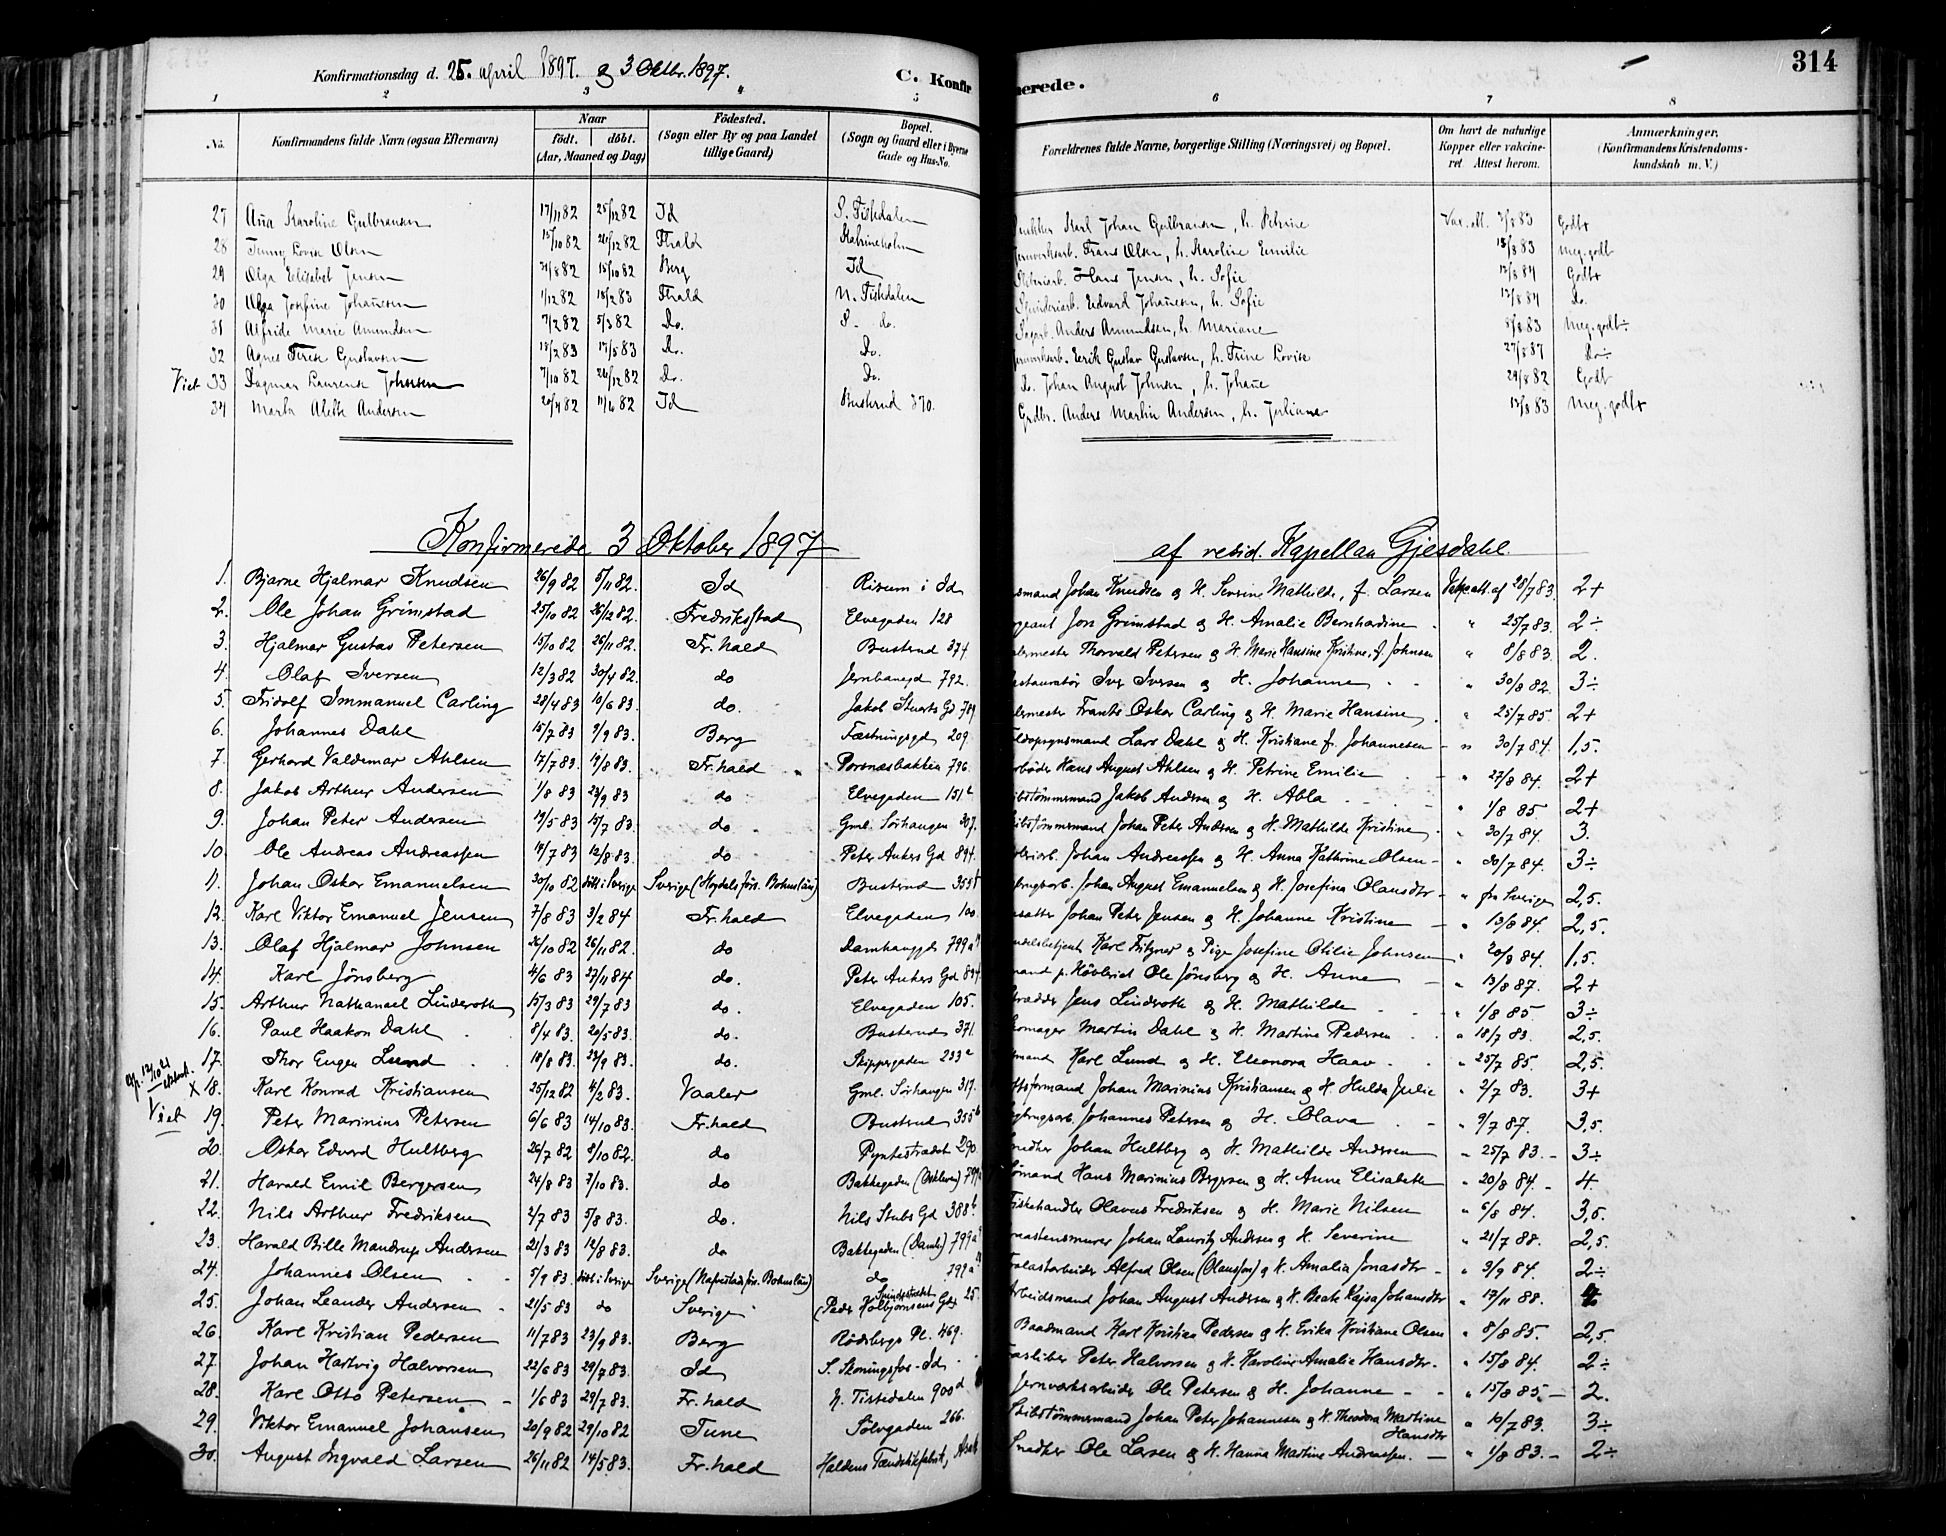 Konfirmationsdag d. 25. april 1897. og 3 Oktbr. 1897. C. Konfirmerede. 314
1 2 3 4 5 6 7 8
No. Konfirmandens fulde Navn (ogsaa Efternavn) Naar födt. döbt. (Aar, Maaned og Dag) Födested. (Sogn eller By og paa Landet tillige Gaard) Bopæl. (Sogn og Gaard eller i Byerne Gade og Hus-No. Forældrenes fulde Navne, borgerlige Stilling (Næringsvei) og Bopæl. Om havt de naturlige Kopper eller vakcineret. Attest herom. Anmærkninger. (Konfirmandens Kristendomskundskab m. V.)
27 Ana Karoline Gulbransen 17/11 82 25/12 82 Id S. Tistedalen Karl Johan Gulbransen, h. Petrine Vac. att. 3/8 83 Godt
28 Jenny Lovise Olsen 15/10 82 26/12 82 Fhald Katrineholm Frans Olsen, h. Karoline Emilie 18/8 83 Meg. godt
29 Olga Elisabet Jensen 31/8 82 15/10 82 Berg Id Hans Jensen, h. Sofie 13/8 84 Godt
30 Olga Josefine Johansen 1/12 82 18/2 83 Fhald N. Tistedalen Edvard Johansen, h. Sofie 13/8 84 do.
31 Alfride Marie Amundsen 7/2 82 5/3 82 Do. S. do. Anders Amundsen, h. Mariane 8/8 83 Meg. godt÷
32 Agnes Gustavsen 18/2 83 17/5 83 Do. Do. Jernverksarb. Gustav Gustavsen, h. Trine Lovise 27/8 87 Do÷
Viet 33 Dagmar Laurense Johnsen 7/10 82 26/12 82 Do. Do. Do. Johan August Johnsen, h. Johane 29/8 82 Godt
34 Marta Alette Andersen 20/4 82 11/6 82 Id Busterud 370. Grdbr. Anders Martin Andersen, h. Juliane 13/8 83 Meg. godt
Konfirmerede 3 Oktober 1897 af resid. Kapellan Gjesdahl.
1. Bjarne Hjalmar Knudsen 26/9 82 5/11 82. Id Risum i Id smand Johan Knudsen og H. Severine Mathilde, f. Larsen 28/7 83. 2+
2. Ole Johan Grimstad 25/10 82 26/12 82. Fredriksstad Elvegaden 128 geant Jon Grimstad og H. Amalie Bernhardine " 25/7 83. 2÷
3. Hjalmar Gustav Petersen 15/10 82 26/11 82. Fr.hald Busterud 374 lermester Thorvald Petersen og H. Marie Hansine Kristine, f. Johnsen " 8/8 83. 2.
4. Olaf Iversen 12/3 82 30/4 82. do Jernbanegd 792. estauratør Iver Iversen og H. Johanne " 30/8 82. 3÷
5. Fridolf Immanuel Carling 28/4 83 10/6 83. do. Jakob Stuarts Gd 789. lermester Frants Oskar Carling og H. Marie Hansine " 25/7 85. 2+
6. Johannes Dahl 15/7 83 9/9 83. Berg Fæstningsgd 209. opsynsmand Lars Dahl og H. Kristiane f. Johannesen " 30/7 84. 1,5.
7. Gerhard Valdemar Ahlsen 17/7 83. 19/8 83. Fr.hald Porsnæsbakken 796. Hans August Ahlsen og H. Petrine Emilie " 27/8 84. 2+
8. Jakob Arthur Andersen 1/8 83 23/9 83 do Elvegaden 151 b ibstømmermand Jakob Andersen og H. Abla " 1/8 85. 2+
9. Johan Peter Andersen 19/5 83 15/7 83. do Gml. Sørhaugen 307. ibstømmermand Johan Peter Andersen og H. Mathilde Kristine " 30/7 84. 3.
10. Ole Andreas Andreassen 19/7 83 12/8 83. do Peter Ankers Gd 894. Johan Andreassen og H. Anna Kathrine Olsen " 30/7 84. 3÷
11. Johan Oskar Emanuelsen 30/10 82 döbt i Sverige Sverige (Hogdals førs. Bohuslän) Busterud 353 Johan August Emanuelsen og H. Josefina Olausdtr " fra Sverige 2,5.
12. Karl Viktor Emanuel Jensen 7/8 83 3/2 84 Fr.hald Elvegaden 100. Johan Peter Jensen og H. Johanne Kristine " 13/8 84. 2,5.
13. Olaf Hjalmar Johnsen 26/10 82 26/11 82. do 799 a Karl Fritzner og Pige Josefine Otilie Johnsen " 20/8 84. 1,5.
14. Karl Jønsberg 4/6 83 27/11 84 do. Peter Ankers Gd 894 mand p. Høvleriet Ole Jønsberg og H. Anne " 13/8 87. 2+
15. Arthur Nathanael Linderoth 15/3 83 29/7 83 do. Elvegaden 105. rædder Jens Linderoth og H. Mathilde " 1/8 85. 3÷
16. Paul Haakon Dahl 8/4 83. 20/5 83. do. Busterud 371. komager Martin Dahl og H. Martine Pedersen " 18/7 83. 2,5.
17. Thor Eugen Lund 18/8 83. 23/9 83. do. Skippergaden 233 a mand Karl Lund og H. Eleonora Haav " 25/7 85. 2,5.
X 18. Karl Konrad Kristiansen 25/12 82 4/2 83. Vaaler Gml. Sørhaugen 317. formand Johan Marinius Kristiansen og H. Hulda Julie " 2/7 83. 3+
Viet 19. Peter Marinius Petersen 6/6 83 14/10 83. Fr.hald Busterud 355 b Johannes Petersen og H. Olava " 9/7 87. 3,5.
20. Oskar Edvard Hultberg 26/7 82 8/10 82. do Pyntestrædet 290 nedker Johan Hultberg og H. Mathilde Andersen " 25/7 83. 3÷
21. Harald Emil Bergersen 24/8 83 7/10 83. do Bakkegaden 799 Sømand Hans Marinius Bergersen og H. Anne Elisabeth " 20/8 84. 4.
22. Nils Arthur Fredriksen 2/7 83 5/8 83. do. Nils Stubs Gd 388 b. Fiskehandler Olavus Fredriksen og H. Marie Nilsen " 6/8 84. 3,5.
23. Harald Bille Mandrup Andersen 21/3 83 12/8 83. do Bakkegaden (Damh.) 799 a raastensmurer Johan Lauritz Andersen og H. Severine " 21/7 88. 2,5.
24. Johannes Olsen 5/9 83. döbt i Sverige Sverige (Nafverstad førs. Bohuslän) do 799 a Løsarbeider Alfred Olsen (Olausson) og H. Amalia Jonasdtr " 3/9 84. 2÷
25. Johan Leander Andersen 21/5 83 do Sverige (Peder Kolbjørnsens Gd) 25. Arbeidsmand Johan August Andersen og H. Beate Kajsa Johansdtr " 17/11 88. 4
26. Karl Kristian Pedersen 11/7 83 23/9 83. Berg Rødsbergs Pl. 469. Baadmand Karl Kristian Pedersen og H. Erika Kristiane Olsen " 8/8 85. 2,5.
27. Johan Hartvig Halvorsen 22/6 83 29/7 83. Id S. Skoningsfos - Id Peter Halvorsen og H. Karoline Amalie Hansdtr. " 15/8 84. 2÷
28. Karl Otto Petersen 1/6 83 29/7 83. Fr.hald N. Tistedalen 900 d. Jernværksarbeider Ole Petersen og H. Johanne " 15/8 85. 2.
29. Viktor Emanuel Johansen 20/9 82 29/10 82 Tune Sølvgaden 266. Skibstømmermand Johan Peter Johannesen og H. Theodora Martine Hansdtr " 10/7 83. 3÷
30. August Ingvald Larsen 26/11 82 14/5 83. Fr.hald Haldens Tændstikfabrik, Asak Snedker Ole Larsen og H. Hanna Martine Andreassen. " 1/8 83. 2÷